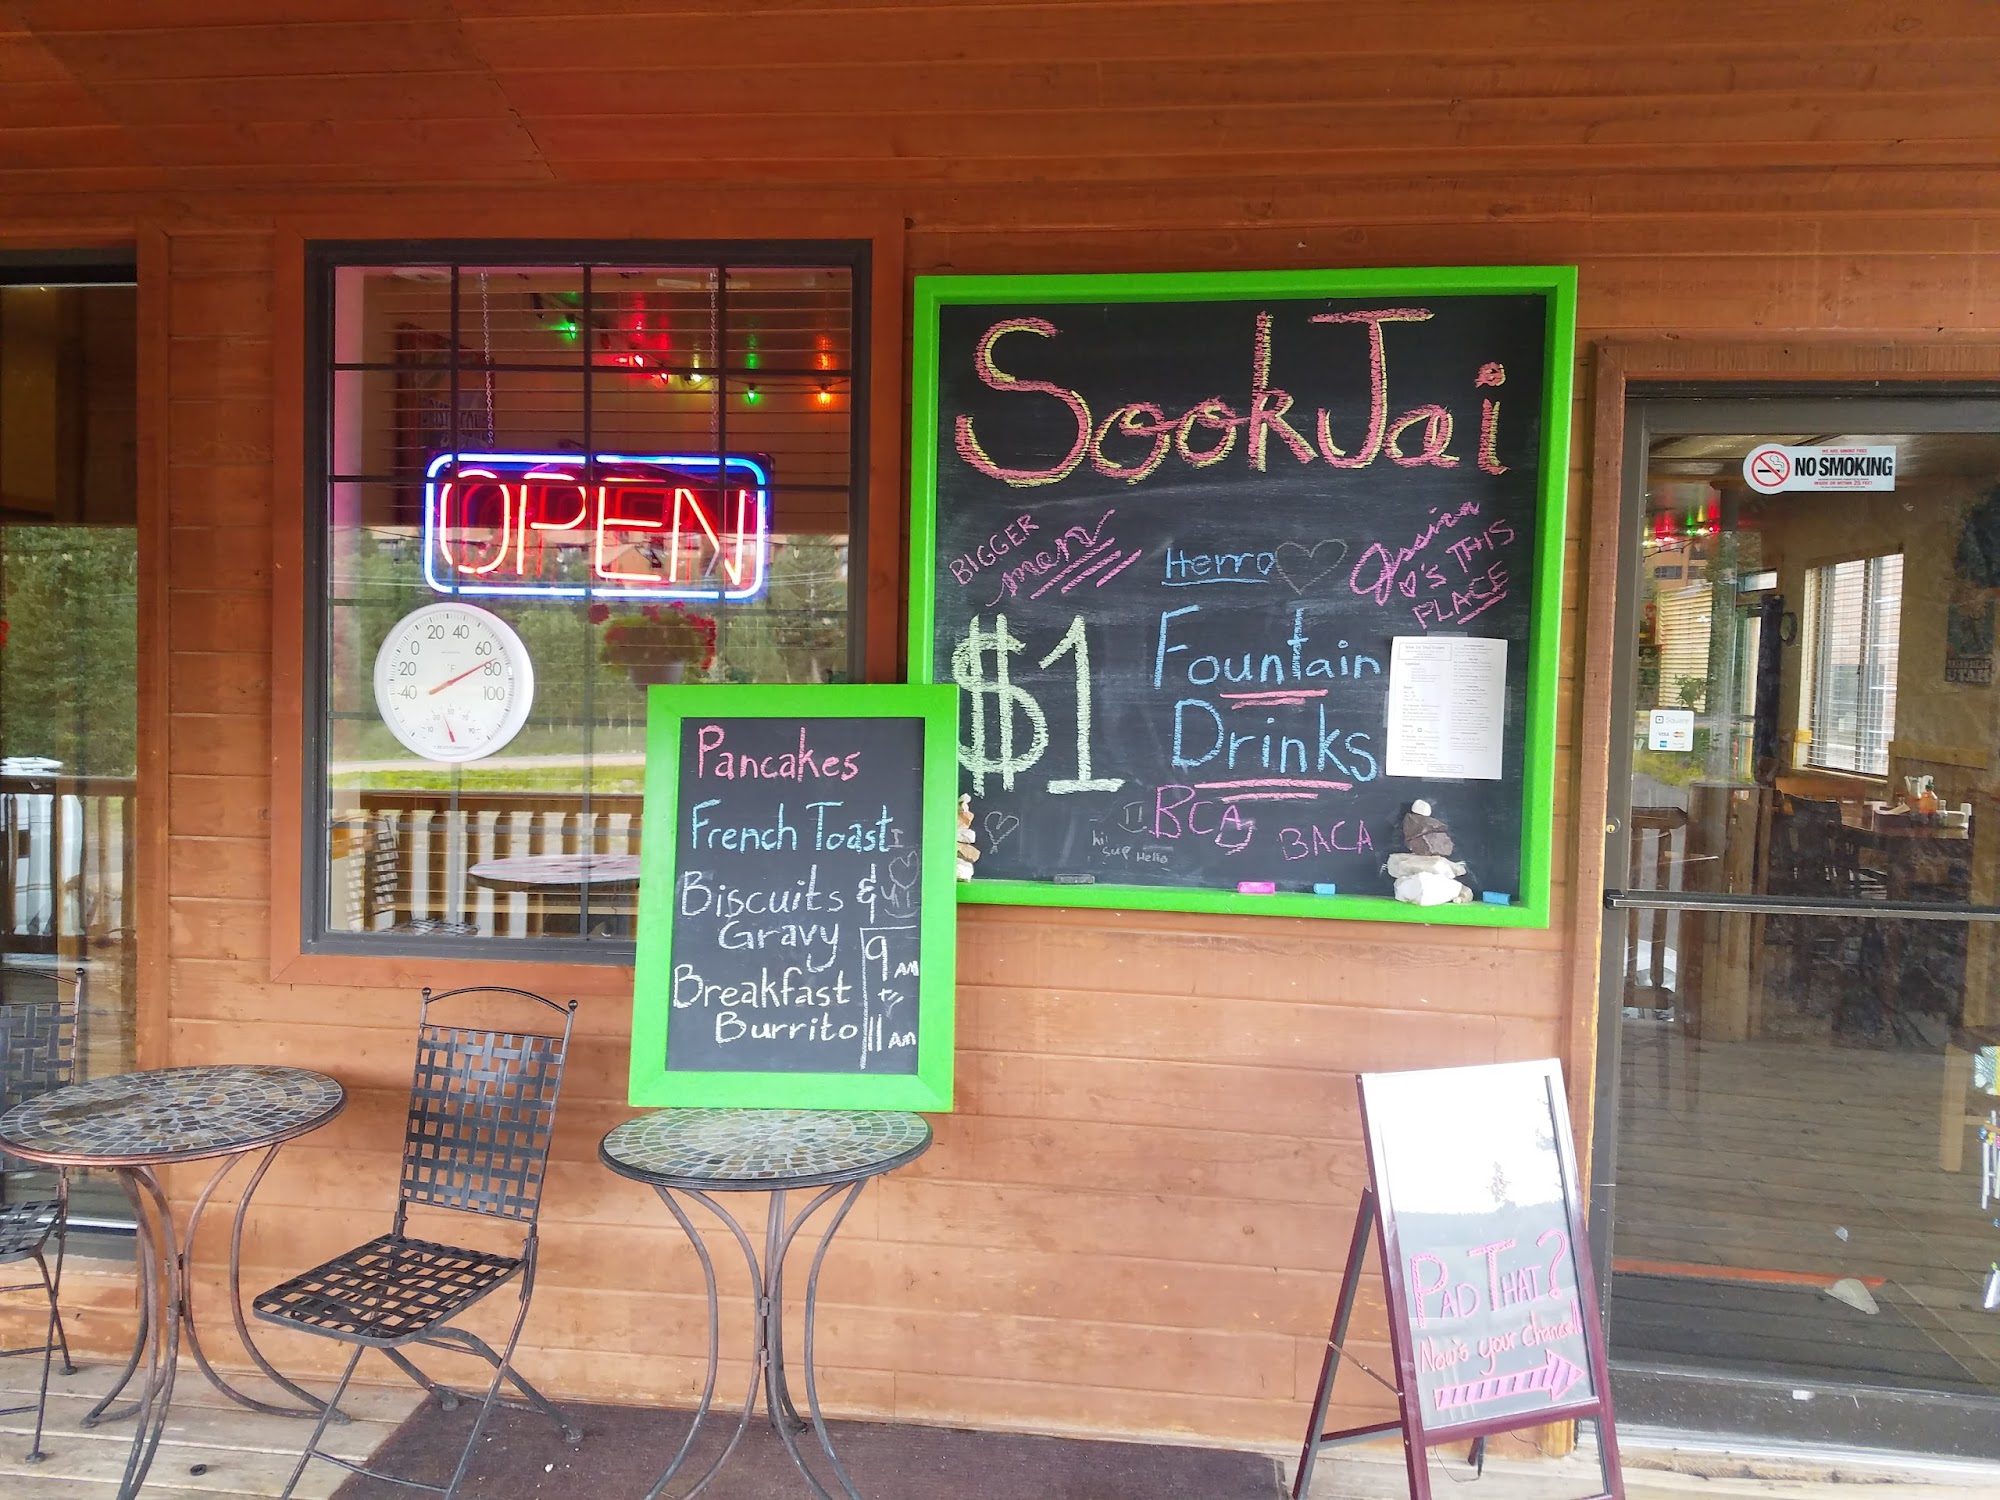 OPEN
20 40
0 60
20 80
-40 100
°F
Pancakes
French Toast
Biscuits &
Gravy
Breakfast
Burrito
9 AM
to
11 AM
I
SookJai
BIGGER
man
Herro
♥'S THIS
PLACE
$1 Fountain
Drinks
BCA
BACA
hi!
sup Hello
NO SMOKING
Square
VISA
UTAH
PAD THAI?
Now's your chance!!